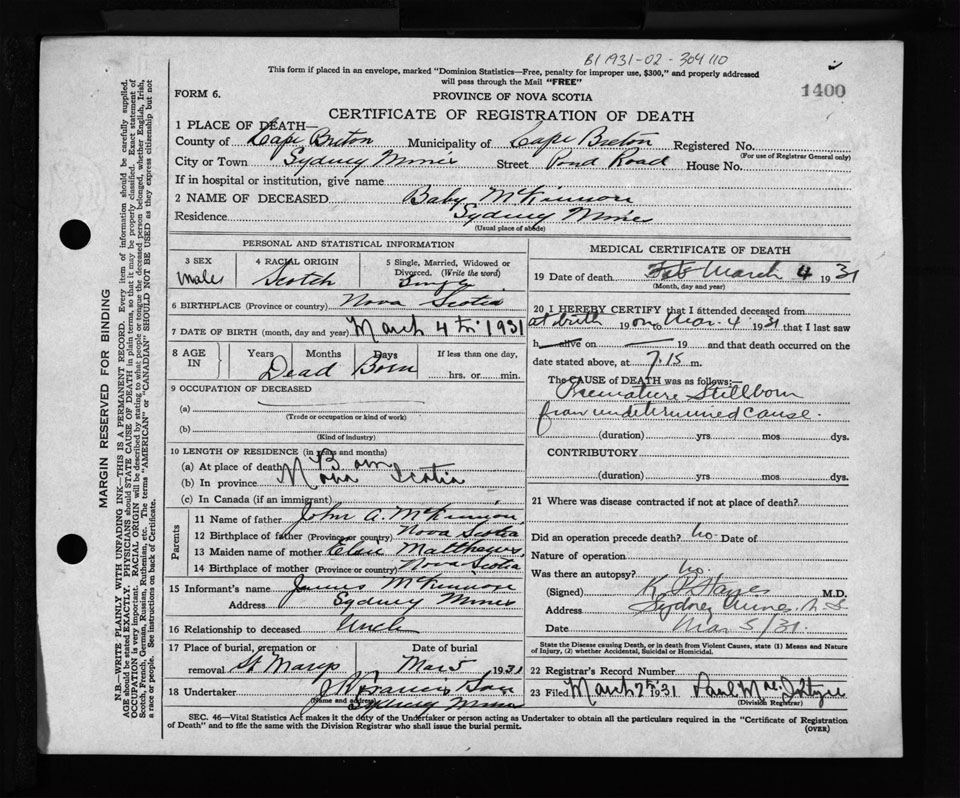 B1 1931-02-304110
This form if placed in an envelope, marked "Dominion Statistics—Free, penalty for improper use, $300," and properly addressed
will pass through the Mail "FREE"
1400
FORM 6.
PROVINCE OF NOVA SCOTIA
CERTIFICATE OF REGISTRATION OF DEATH
1 PLACE OF DEATH—
County of Cape Breton Municipality of Cape Breton Registered No.
(For use of Registrar General only)
City or Town Sydney Mines Street Pond Road House No.
If in hospital or institution, give name
2 NAME OF DECEASED Baby McKinnon
Residence Sydney Mines
(Usual place of abode)
PERSONAL AND STATISTICAL INFORMATION
3 SEX 4 RACIAL ORIGIN 5 Single, Married, Widowed or
Divorced. (Write the word)
Male Scotch Single
6 BIRTHPLACE (Province or country) Nova Scotia
7 DATE OF BIRTH (month, day and year) March 4th 1931
8 AGE IN Years Months Days If less than one day,
Dead Born
hrs. or min.
9 OCCUPATION OF DECEASED
(a)
(Trade or occupation or kind of work)
(b)
(Kind of industry)
10 LENGTH OF RESIDENCE (in years and months)
(a) At place of death Born
(b) In province Nova Scotia
(c) In Canada (if an immigrant)
Parents
11 Name of father John A. McKinnon
12 Birthplace of father (Province or country) Nova Scotia
13 Maiden name of mother Elsie Matthews
14 Birthplace of mother (Province or country) Nova Scotia
15 Informant's name James McKinnon
Address Sydney Mines
16 Relationship to deceased Uncle
17 Place of burial, cremation or removal St Marys
Date of burial Mar 5 1931
18 Undertaker J Francis
(Name and address)
Sydney Mines
MEDICAL CERTIFICATE OF DEATH
19 Date of death March 4 1931
(Month, day and year)
20 I HEREBY CERTIFY that I attended deceased from
at birth 19 on to Mar. 4 1931 that I last saw
h alive on 19 and that death occurred on the
date stated above, at 7.15 m.
The CAUSE of DEATH was as follows:—
Premature Stillborn
from undetermined cause.
(duration) yrs. mos dys.
CONTRIBUTORY
(duration) yrs. mos. dys.
21 Where was disease contracted if not at place of death?
Did an operation precede death? no. Date of
Nature of operation
Was there an autopsy? no.
(Signed) K. M.D.
Address Sydney Mines N.S
Date Mar 5/31.
State the Disease causing Death, or in death from Violent Causes, state (1) Means and Nature
of Injury, (2) whether Accidental, Suicidal or Homicidal.
22 Registrar's Record Number
23 Filed March 1931 Paul Mac Intyre
(Division Registrar)
SEC. 46—Vital Statistics Act makes it the duty of the Undertaker or person acting as Undertaker to obtain all the particulars required in the "Certificate of Registration
of Death" and to file the same with the Division Registrar who shall issue the burial permit.
(OVER)
MARGIN RESERVED FOR BINDING
N.B.—WRITE PLAINLY WITH UNFADING INK—THIS IS A PERMANENT RECORD. Every item of information should be carefully supplied.
AGE should be stated EXACTLY. PHYSICIANS should STATE CAUSE OF DEATH in plain terms, so that it may be properly classified. Exact statement of
OCCUPATION is very important. RACIAL ORIGIN will be described by stating to what people or tongue the deceased person belonged, whether English, Irish,
Scotch, French, German, Russian, Ruthenian, etc. The terms "AMERICAN" or "CANADIAN" SHOULD NOT BE USED as they express citizenship but not
a race or people. See instructions on back of Certificate.